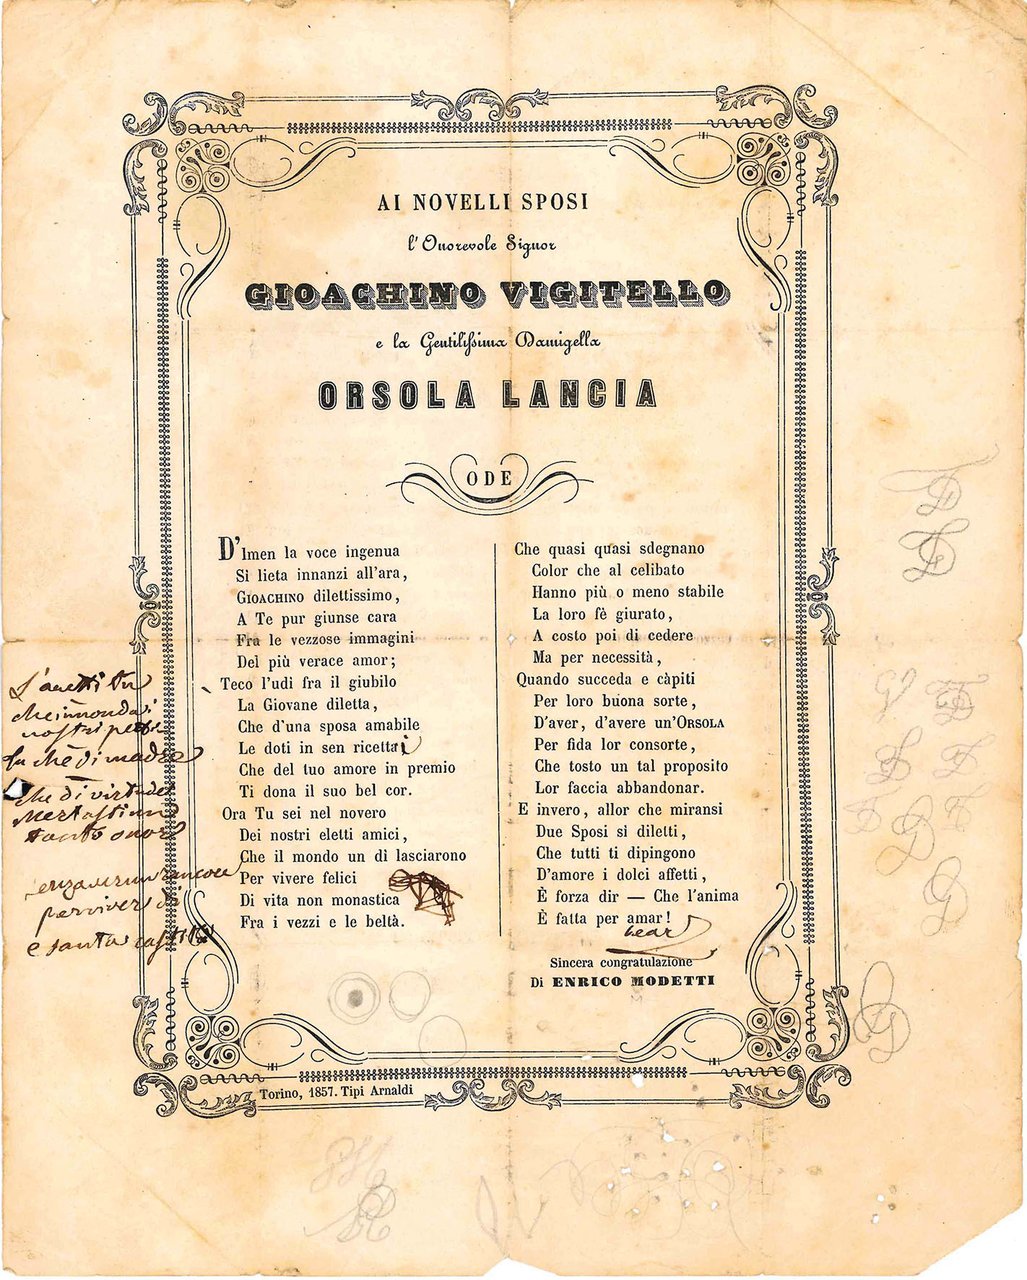 AI NOVELLI SPOSI
l'Onorevole Signor
GIOACHINO VIGITELLO
e la Gentilissima Damigella
ORSOLA LANCIA
ODE
D'Imen la voce ingenua
Sì lieta innanzi all'ara,
GIOACHINO dilettissimo,
A Te pur giunse cara
Fra le vezzose immagini
Del più verace amor;
Teco l'udì fra il giubilo
La Giovane diletta,
Che d'una sposa amabile
Le doti in sen ricetta
Che del tuo amore in premio
Ti dona il suo bel cor.
Ora Tu sei nel novero
Dei nostri eletti amici,
Che il mondo un dì lasciarono
Per vivere felici
Di vita non monastica
Fra i vezzi e le beltà.
Che quasi quasi sdegnano
Color che al celibato
Hanno più o meno stabile
La loro fè giurato,
A costo poi di cedere
Ma per necessità,
Quando succeda e càpiti
Per loro buona sorte,
D'aver, d'avere un'ORSOLA
Per fida lor consorte,
Che tosto un tal proposito
Lor faccia abbandonar.
E invero, allor che miransi
Due Sposi sì diletti,
Che tutti ti dipingono
D'amore i dolci affetti,
È forza dir — Che l'anima
È fatta per amar!
bear
Sincera congratulazione
Di ENRICO MODETTI
Torino, 1857. Tipi Arnaldi
che inonda i
nostri
che di madre
che di virtude
tanto onore
per viver
e santa